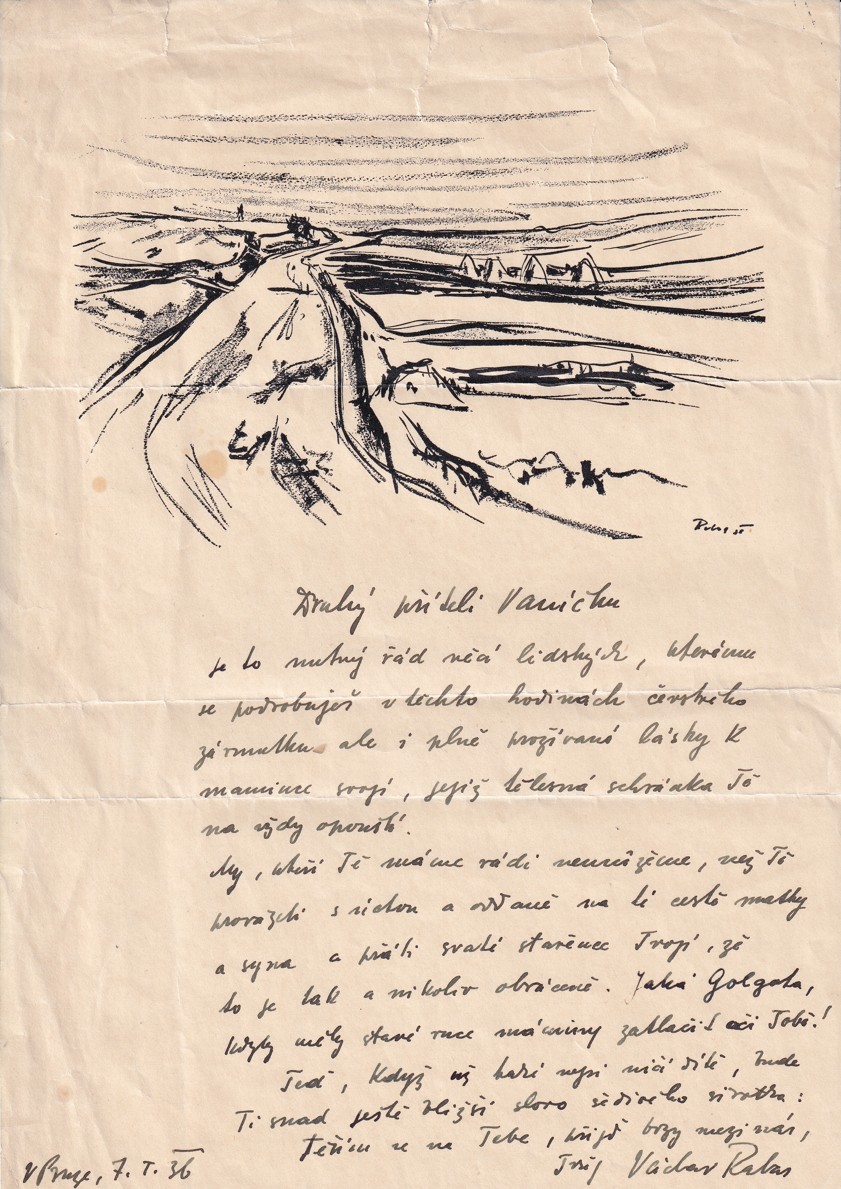 Rabas 35
Drahý příteli Vaníčku
je to nutný řád věcí lidských, kterému
se podrobuješ v těchto hodinách čerstvého
zármutku ale i plně prožívané lásky k
mamince svojí, jejíž tělesná schránka Tě
na vždy opouští.
My, kteří Tě máme rádi nemůžeme, než Tě
provázeti s úctou a oddaně na té cestě matky
a syna a přáti svaté stařence Tvojí, že
to je tak a nikoliv obráceně. Jaká Golgota,
kdyby měly staré ruce máminy zatlačit oči Tobě!
Teď, když už také nejsi ničí dítě, bude
Ti snad ještě bližší slovo šedivého sirotka:
těším se na Tebe, přijď brzy mezi nás,
Tvůj Václav Rabas
V Praze, 7. I. 36